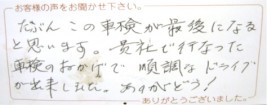 お客様の声をお聞かせ下さい。
たぶんこの車検が最後になる
と思います。貴社で行なった
車検のおかげで順調なドライブ
が出来ました。ありがとう!
ありがとうございました。